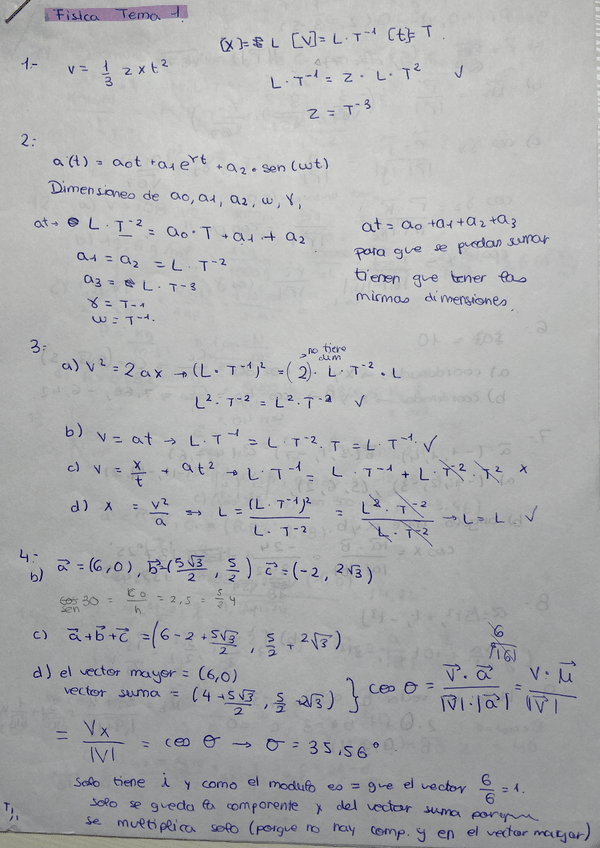 Física Tema 1.
[X]= L [V]= L · T⁻¹ [t]= T.
1.- v = 1/3 z x t² L · T⁻¹ = Z · L · T² ✓
Z = T⁻³
2:
a(t) = a0t + a1e^γt + a2 · sen(wt)
Dimensiones de a0, a1, a2, w, γ,
at → L · T⁻² = a0 · T + a1 + a2
a1 = a2 = L · T⁻²
a3 = L · T⁻³
γ = T⁻¹
w = T⁻¹.
at = a0 + a1 + a2 + a3
para que se puedan sumar
tienen que tener las
mismas dimensiones.
3:
no tiene
dim
a) v² = 2ax → (L · T⁻¹)² = (2) · L · T⁻² · L
L² · T⁻² = L² · T⁻² ✓
b) v = at → L · T⁻¹ = L · T⁻² · T = L · T⁻¹ · ✓
c) v = x/t + at² → L · T⁻¹ = L · T⁻¹ + L · T⁻² · T² x
d) x = v²/a ⇒ L = (L · T⁻¹)²/L · T⁻² = L² · T⁻²/L · T⁻² → L = L ✓
4:
b) a⃗ = (6,0), b⃗ = (5√3/2, 5/2) c⃗ = (-2, 2√3)
sen 30 = /h = 2,5 = 5/2
c) a⃗+b⃗+c⃗ = (6-2+5√3/2, 5/2+2√3)
d) el vector mayor = (6,0)
vector suma = (4+5√3/2, 5/2+2√3) } cos σ = v⃗ · a⃗/|v⃗| · |a⃗| = v · μ⃗/|v⃗|
6/|6|
= Vx/|V| = cos σ → σ = 35,56°.
Solo tiene i y como el modulo es = que el vector 6/6 = 1.
Solo se queda la componente x del vector suma porque
se multiplica solo (porque no hay comp. y en el vector mayor)